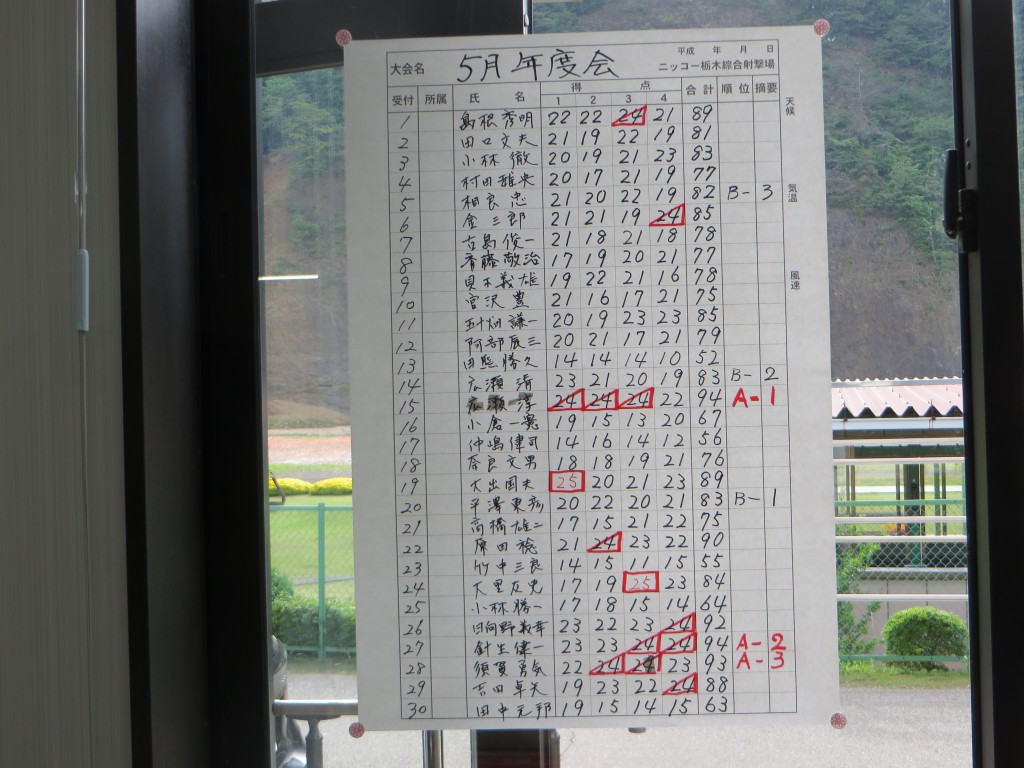 平成 年 月 日
大会名 5月年度会 ニッコー栃木綜合射撃場
受付 所属 氏 名 得 点 合計 順位 摘要
1 2 3 4
天候
気温
風速
1 島根秀明 22 22 24 21 89
2 田口文夫 21 19 22 19 81
3 小林 徹 20 19 21 23 83
4 村田雅央 20 17 21 19 77
5 相良 忠 21 20 22 19 82 B-3
6 金 三郎 21 21 19 24 85
7 古島俊一 21 18 21 18 78
8 斉藤敬治 17 19 20 21 77
9 見木義雄 19 22 21 16 78
10 宮沢 豊 21 16 17 21 75
11 五十畑謙一 20 19 23 23 85
12 阿部辰三 20 21 17 21 79
13 田熊勝久 14 14 14 10 52
14 広瀬 清 23 21 20 19 83 B-2
15 広瀬 淳 24 24 24 22 94 A-1
16 小倉一憲 19 15 13 20 67
17 仲嶋健司 14 16 14 12 56
18 奈良文男 18 18 19 21 76
19 大出国夫 25 20 21 23 89
20 平澤東彦 20 22 20 21 83 B-1
21 高橋雄二 17 15 21 22 75
22 原田 稔 21 24 23 22 90
23 竹中三良 14 15 11 15 55
24 大里 17 19 25 23 84
25 小林勝一 17 18 15 14 64
26 日向野義幸 23 22 23 24 92
27 針生偉一 23 23 24 24 94 A-2
28 須賀勇気 22 24 24 23 93 A-3
29 吉田卓矢 19 23 22 24 88
30 田中元邦 19 15 14 15 63